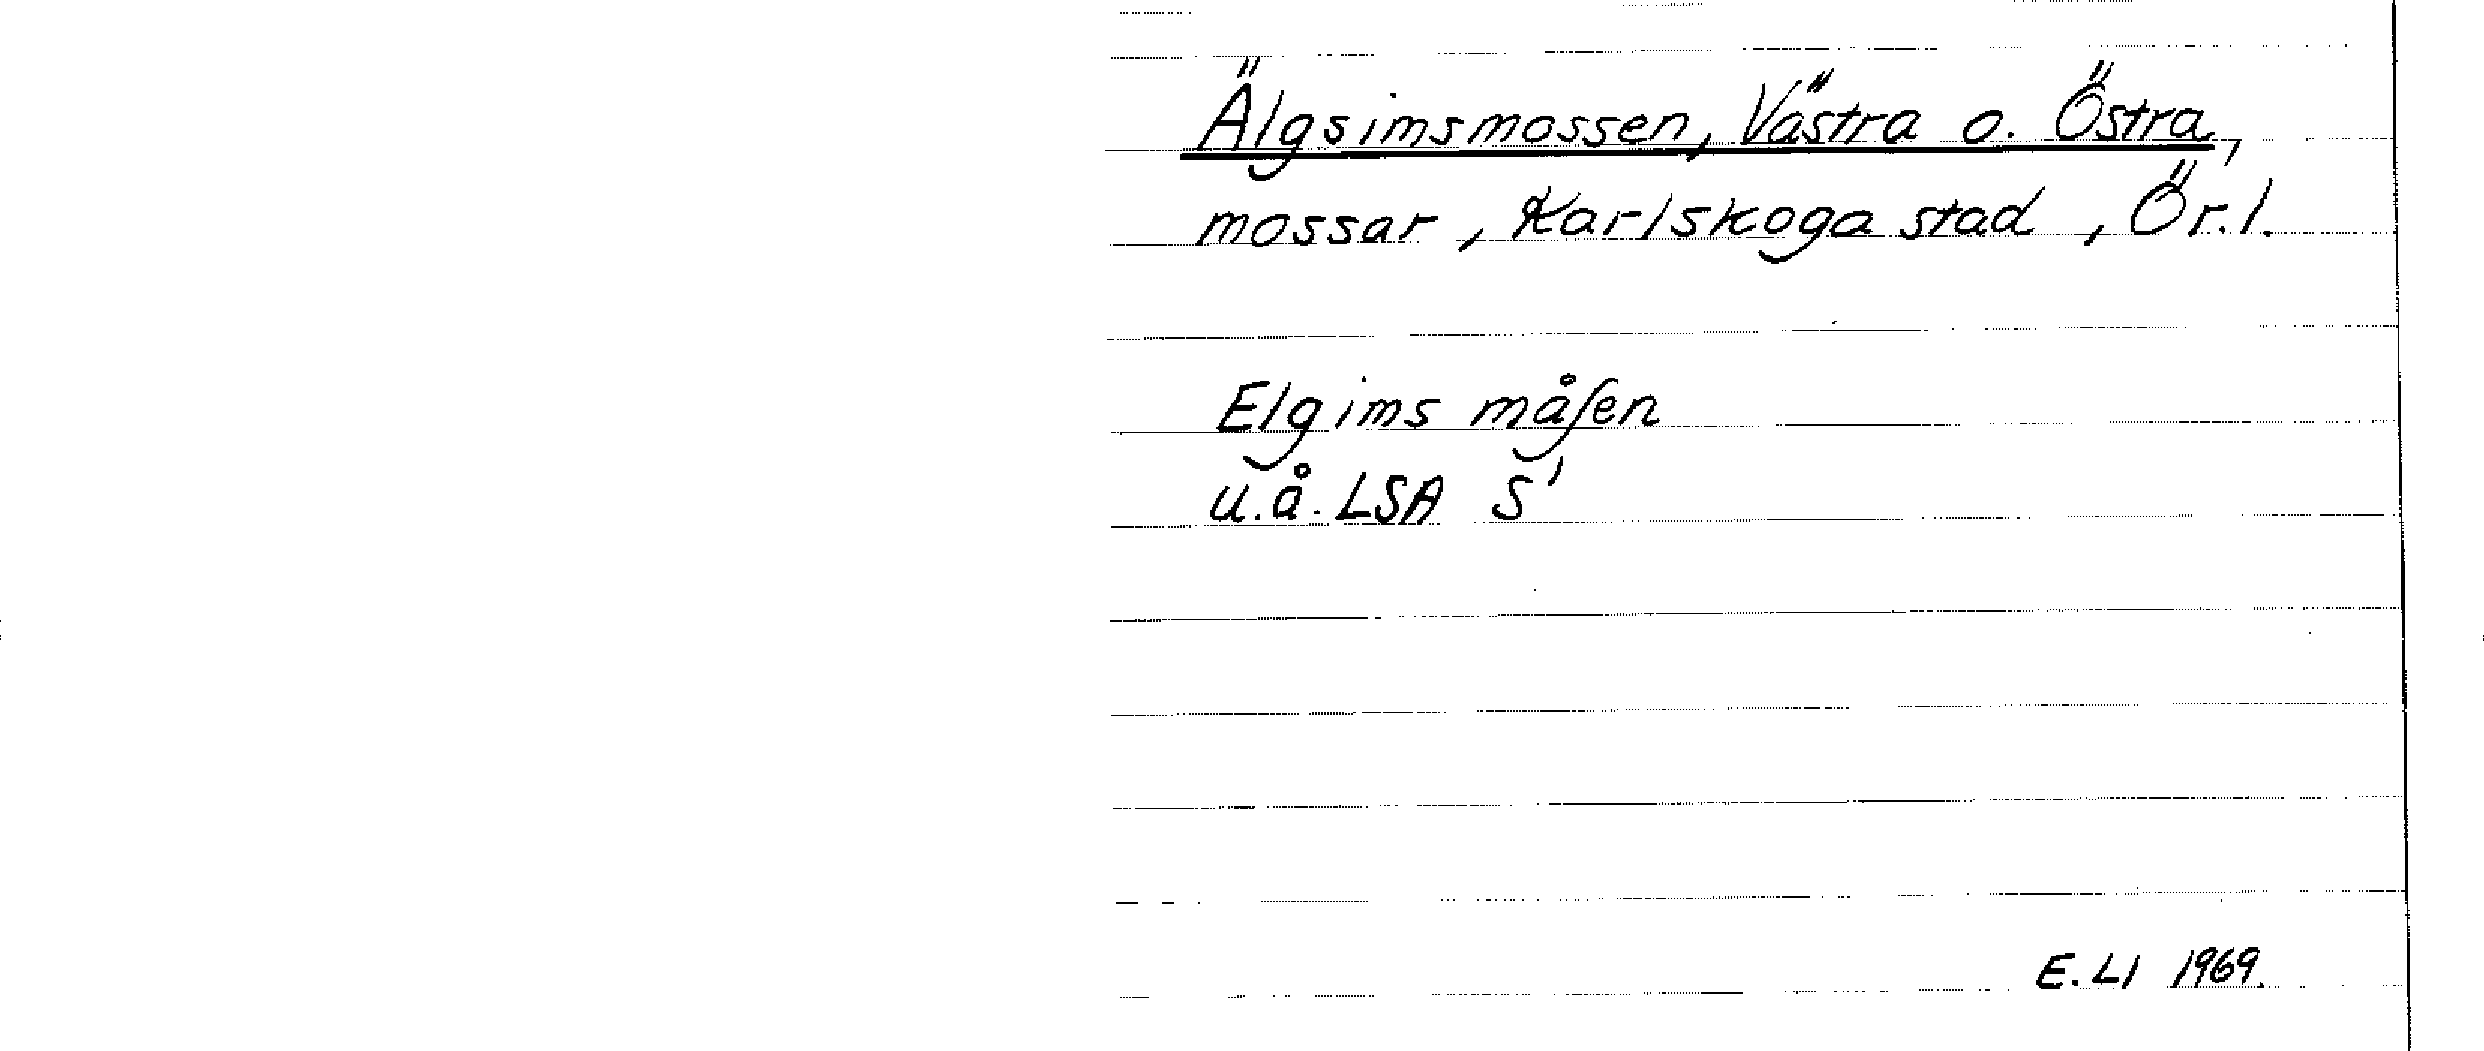 Älgsimsmossen, Västra o. Östra,
mossar, Karlskoga stad, Ör.l.
Elgims måſen
u.å. LSA S'
E.LI 1969.